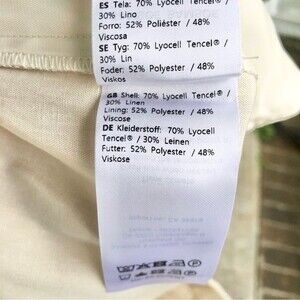 ES Tela: 70% Lyocell Tencel® /
30% Lino
Forro: 52% Poliéster / 48%
Viscosa
SE Tyg: 70% Lyocell Tencel® /
30% Lin
Foder: 52% Polyester / 48%
Viskos
GB Shell: 70% Lyocell Tencel® /
30% Linen
Lining: 52% Polyester / 48%
Viscose
DE Kleiderstoff: 70% Lyocell
Tencel® / 30% Leinen
Futter: 52% Polyester / 48%
Viskose